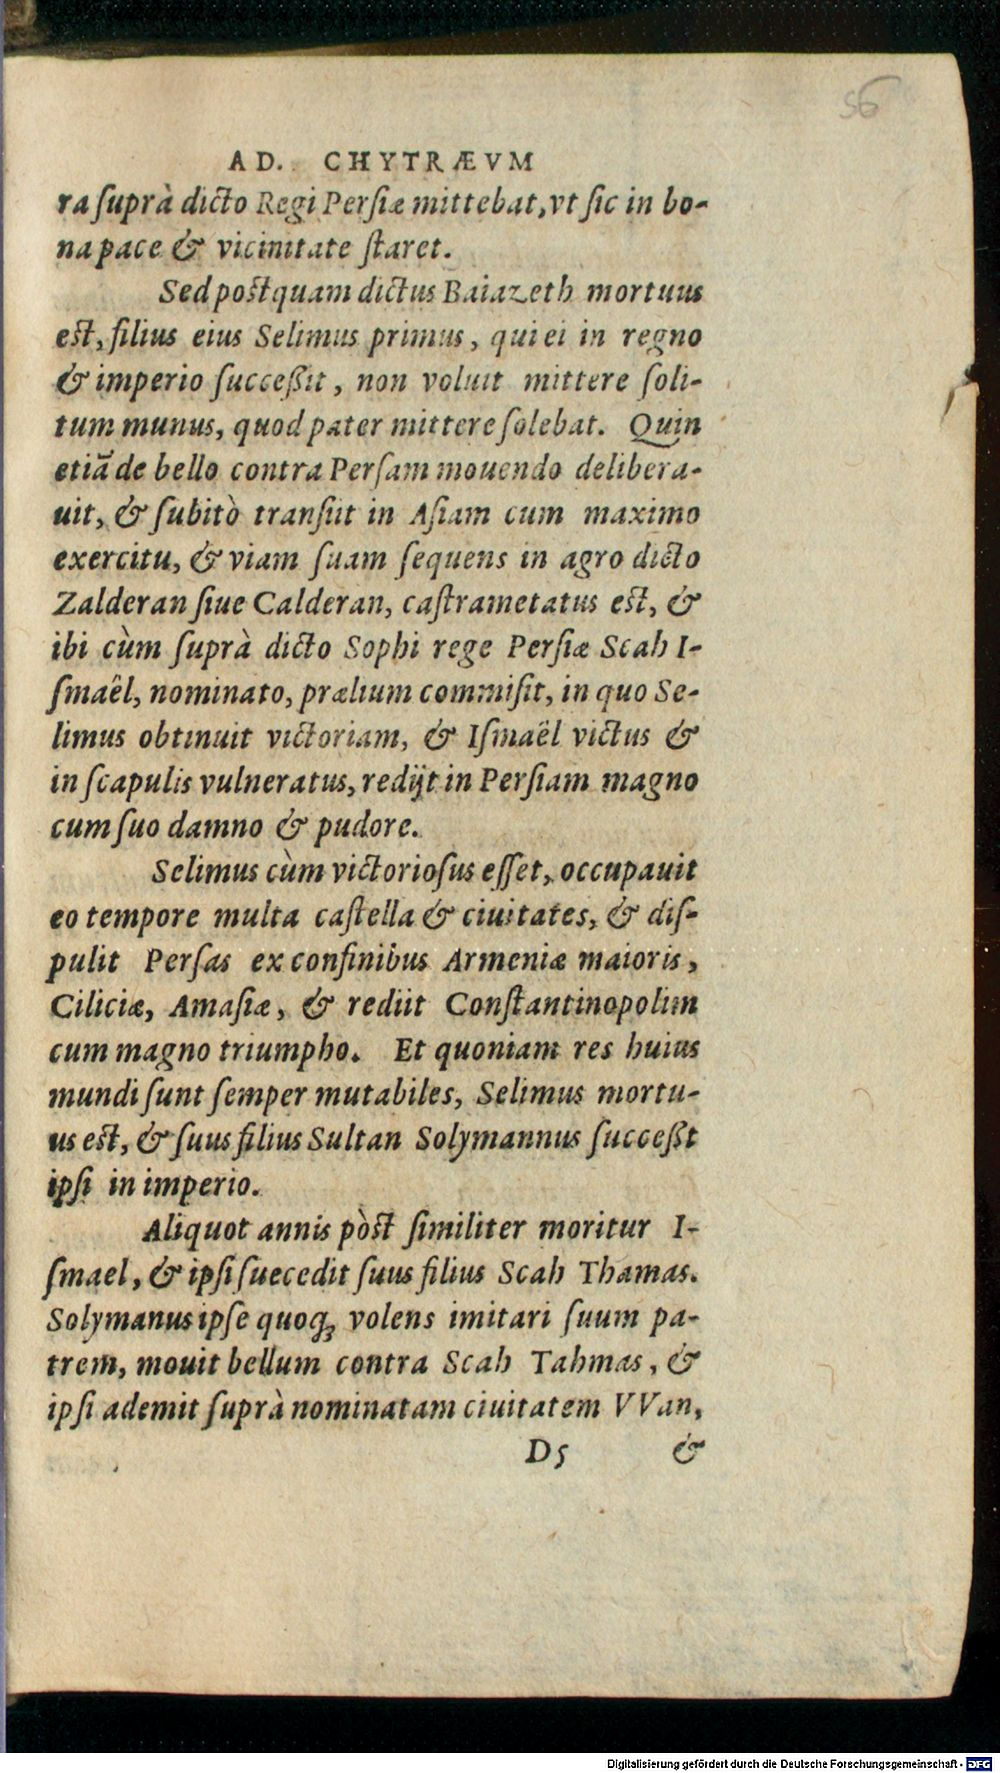 56
AD. CHYTRÆVM
ra ſuprà dicto Regi Perſiæ mittebat, vt ſic in bo-
na pace & vicinitate ſtaret.
Sed postquam dictus Baiazeth mortuus
est, filius eius Selimus primus, qui ei in regno
& imperio ſucceßit, non voluit mittere ſoli-
tum munus, quod pater mittere ſolebat. Quin
etiā de bello contra Perſam mouendo delibera-
uit, & ſubitò tranſiit in Aſiam cum maximo
exercitu, & viam ſuam ſequens in agro dicto
Zalderan ſiue Calderan, caſtrametatus est, &
ibi cùm ſuprà dicto Sophi rege Perſiæ Scah I-
ſmaêl, nominato, prælium commiſit, in quo Se-
limus obtinuit victoriam, & Iſmaël victus &
in ſcapulis vulneratus, redijt in Perſiam magno
cum ſuo damno & pudore.
Selimus cùm victorioſus eſſet, occupauit
eo tempore multa caſtella & ciuitates, & diſ-
pulit Perſas ex confinibus Armeniæ maioris,
Ciliciæ, Amaſiæ, & rediit Conſtantinopolim
cum magno triumpho. Et quoniam res huius
mundi ſunt ſemper mutabiles, Selimus mortu-
us est, & ſuus filius Sultan Solymannus ſucceßt
ipſi in imperio.
Aliquot annis pòst ſimiliter moritur I-
ſmael, & ipſi ſuecedit ſuus filius Scah Thamas.
Solymanus ipſe quoq; volens imitari ſuum pa-
trem, mouit bellum contra Scah Tahmas, &
ipſi ademit ſuprà nominatam ciuitatem VVan,
D5 &
Digitalisierung gefördert durch die Deutsche Forschungsgemeinschaft - DFG